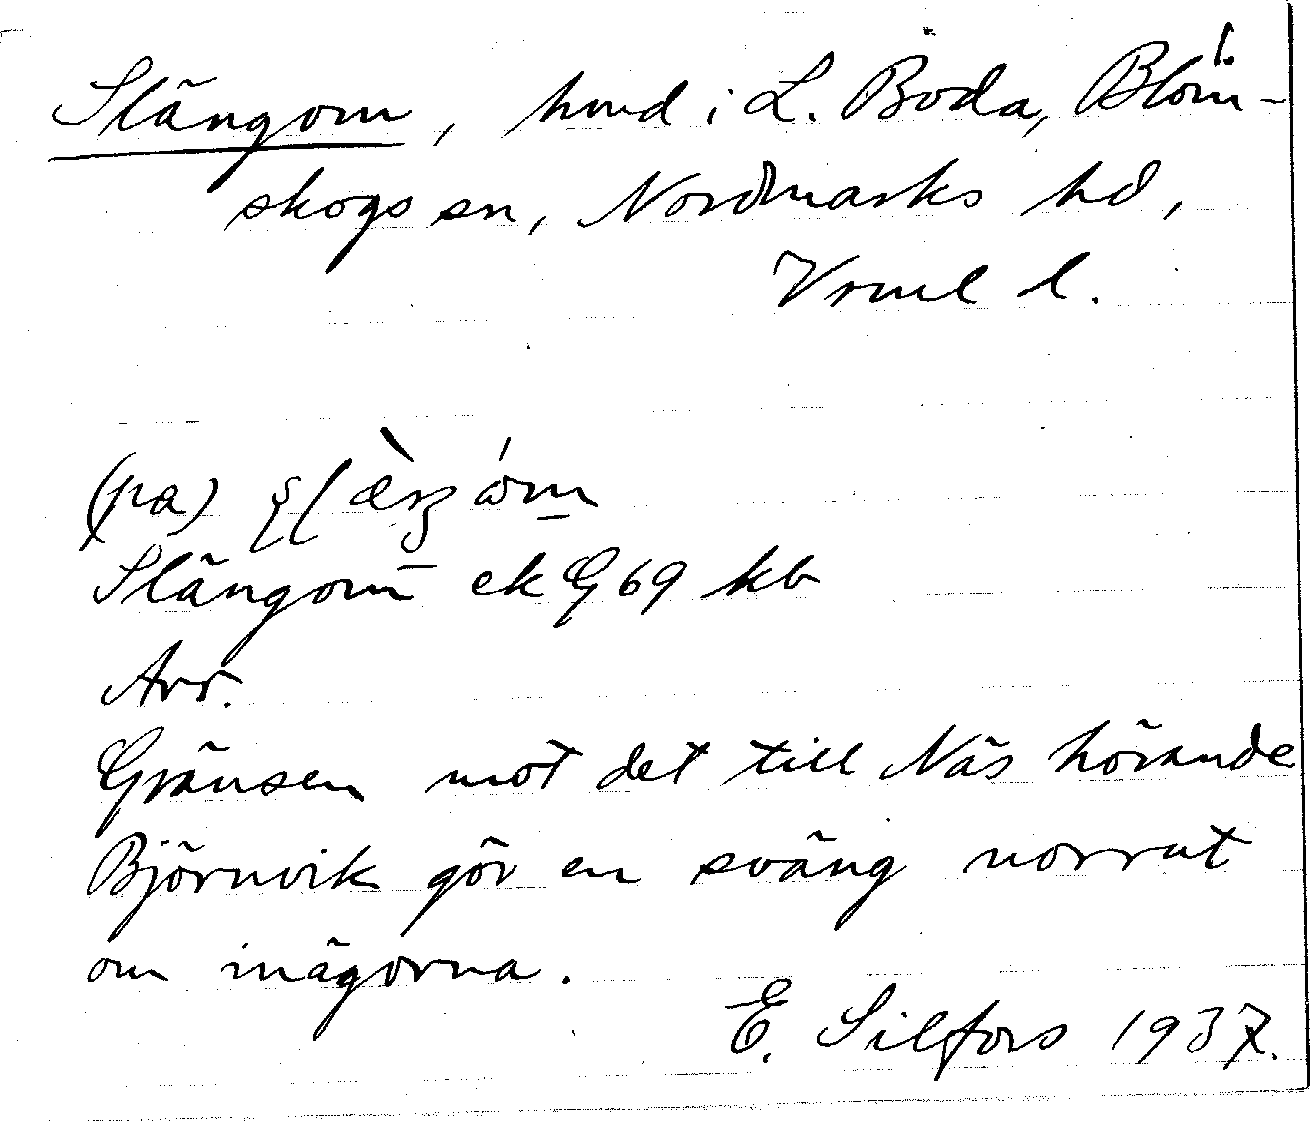 Slängom, hmd i L. Boda, Blom-
skogs sn, Nordmarks hd,
Vrml l.
(pa)
Slängom̄ ek G 69 kb
Avs.
Gränsen mot det till Näs hörande
Björnvik gör en sväng norrut
om inägorna.
E. Silfors 1937.